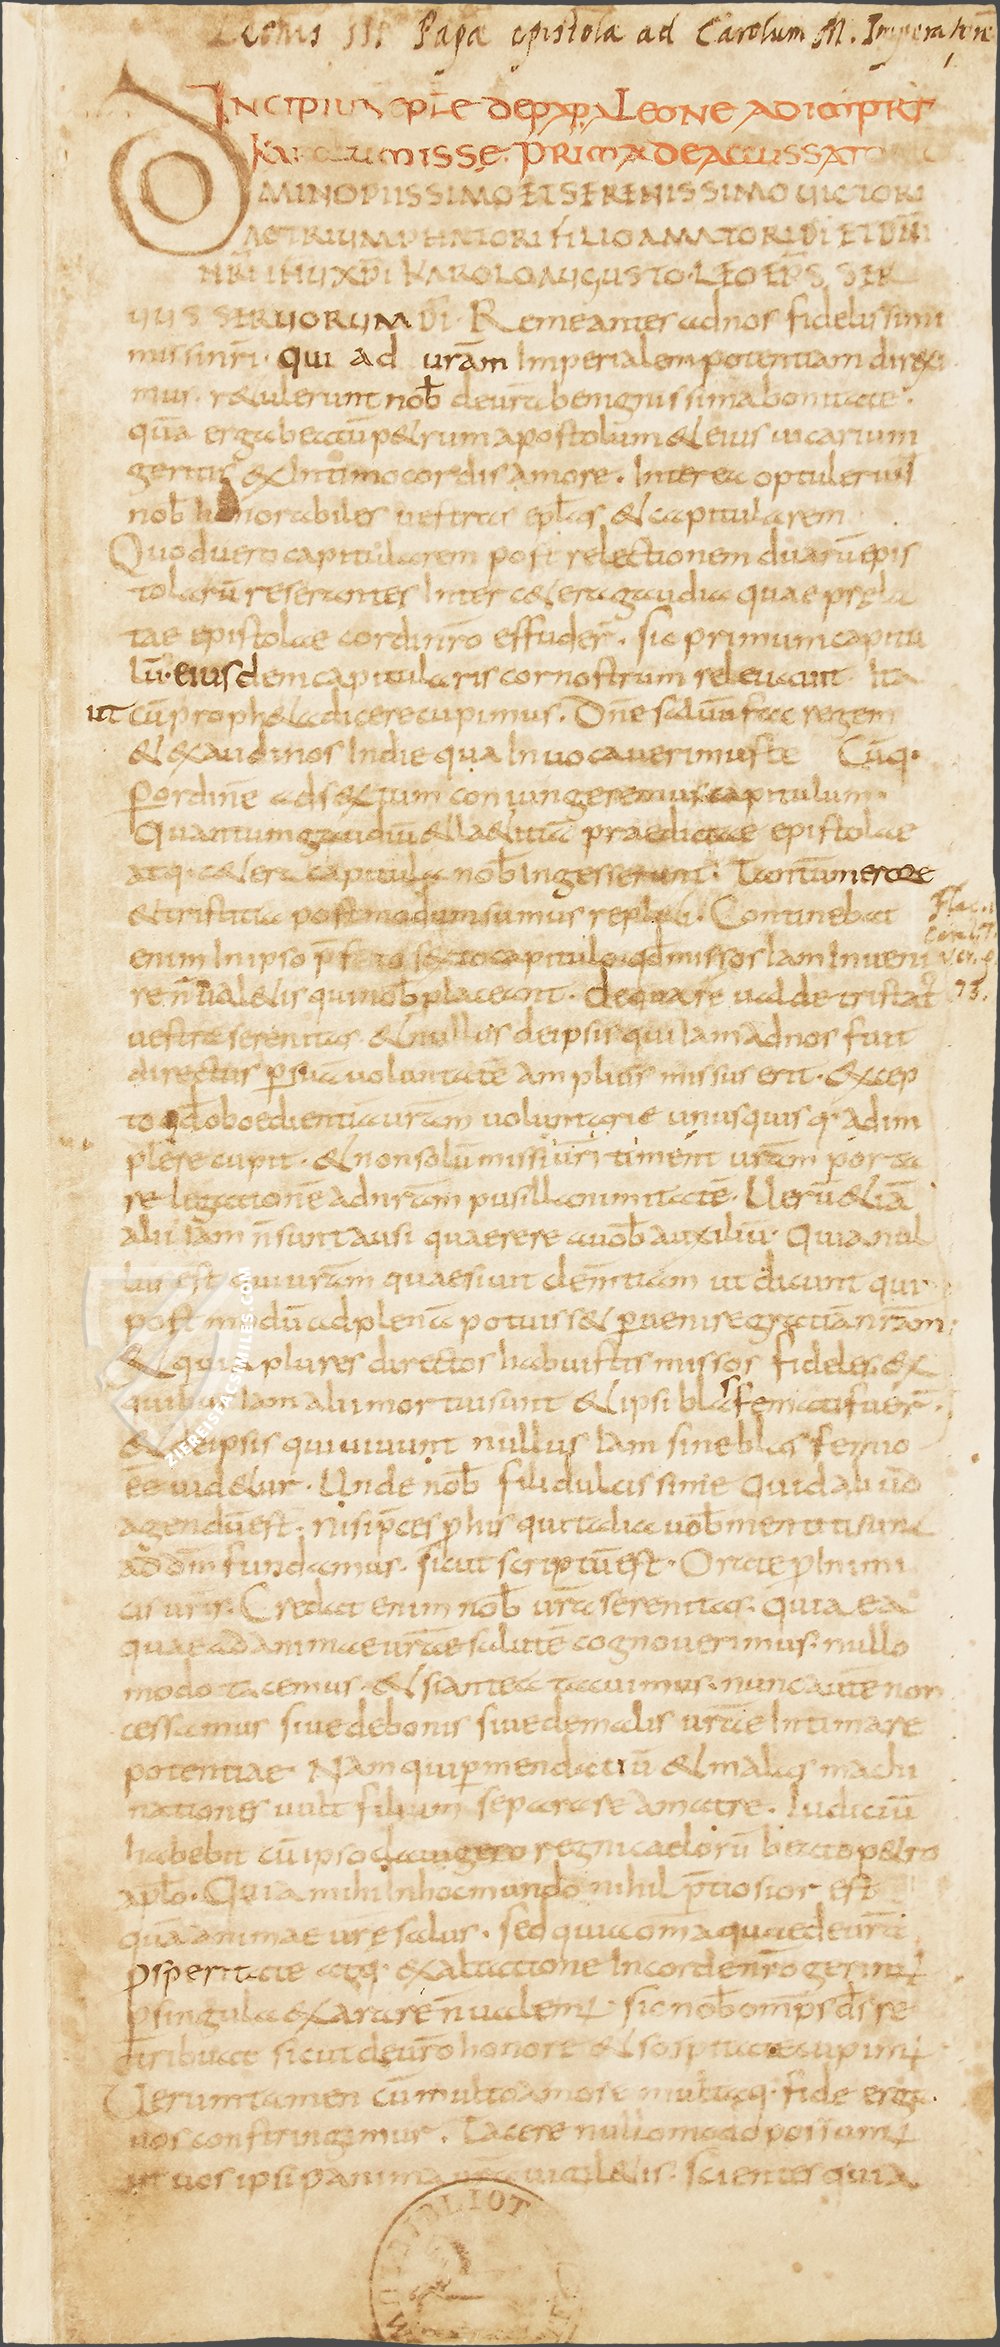 Leonis III Papæ epistola ad Carolum M. Imperatorē
INCIPIUN EPLE DE PAPA LEONE AD
KAROLUM MISSE. PRIMA DE ACCUSSATO
DOMINO PIISSIMO ET SERENISSIMO VICTORI
AC TRIVMPHATORI FILIO AMATORI DI ET DNI
NRI IHV XPI KAROLO AVGVSTO. LEO EPS SER
VVS SERVORVM DI. Remeantes ad nos fidelissimi
missi nri. qui ad uram Imperialem potentiam direxi
mus. r&ulerunt nob de ura benignissima bonitate.
quā erga beatū p&rum apostolum & eius uicarium
geritis ex Intimo cordis amore. Interea optulerunt
nob honorabiles uestras eplas & capitularem
Quod uero capitularem post relectionem duarū epis
tolarū reserantes Inter c&era gaudia quae pręla
tae epistolae cordi nro effuder. sic primum capitu
lū. eiusdem capitularis cor nostrum releuauit Ita
ut cū proph&a dicere cupimus. Dne saluū fac regem
& exaudi nos In die qua Inuocauerimus te Cūq.
p ordinē ad sextum coniungeremus capitulum.
Quantum gaudiū & la&itiā praedictae epistolae
atq. c&era capitula nob Ingesserunt. Tantū merore
& tristitia postmodum sumus repl&i. Continebat
enim In ipso pfato sexto capitulo. qd missos Iam Inueni
re n ual&is qui nob placeant. de qua re ualde tristat
uestra serenitas. & nullus de ipsis qui Iam ad nos fuit
directus p sua uoluntate amplius missus erit. excep
to qd oboedientia uram uoluntarie unusquisq. adim
plere cupit. & non solū missi uri timent uram porta
re legationē ad nram pusillanimitatē. Uerū &iā
alii Iam n sunt ausi quaerere a uob auxiliū. Quia nul
lus est qui uram quaesiuit clemtiam ut dicunt qui
postmodū ad plenā potuiss& puenire gratiā nram.
& quia plures directos habuistis missos fideles. ex
quibus Iam alii mortui sunt & ipsi blasfemati fuer.
& de ipsis qui uiuunt nullus Iam sine blasfemio
ee uid&ur. Unde nob fili dulcissime quid aliud
agendū est. nisi pces p his qui talia uob mentiti sunt
ad dm fundamus. sicut scriptū est. Orate p Inimi
cis uris. Credat enim nob ura serenitas. quia ea
quae ad animae urae salutē cognouerimus. nullo
modo tacemus. & si antea tacuimus. nunc autē non
cessamus siue de bonis siue de malis urae Intimare
potentiae. Nam qui p mendatiū & malas machi
nationes uult filium separare a matre. Iudiciū
habebit cū ipso clauigero regni caelorū beato p&ro
aplo. Quia mihi In hoc mundo nihil ptiosior est
quā animae urę salus. sed quia oma quae de ura
psperitate atq. exaltatione In corde nro gerim
p singula exarare n ualem. sic nob omps ds re
tribuat sicut de uro honore & sospitate cupim
Uerumtamen cū multo amore multaq. fide erga
uos constringimur. Tacere nullo modo possum
ut uos ipsi p anima ura uigil&is. scientes quia